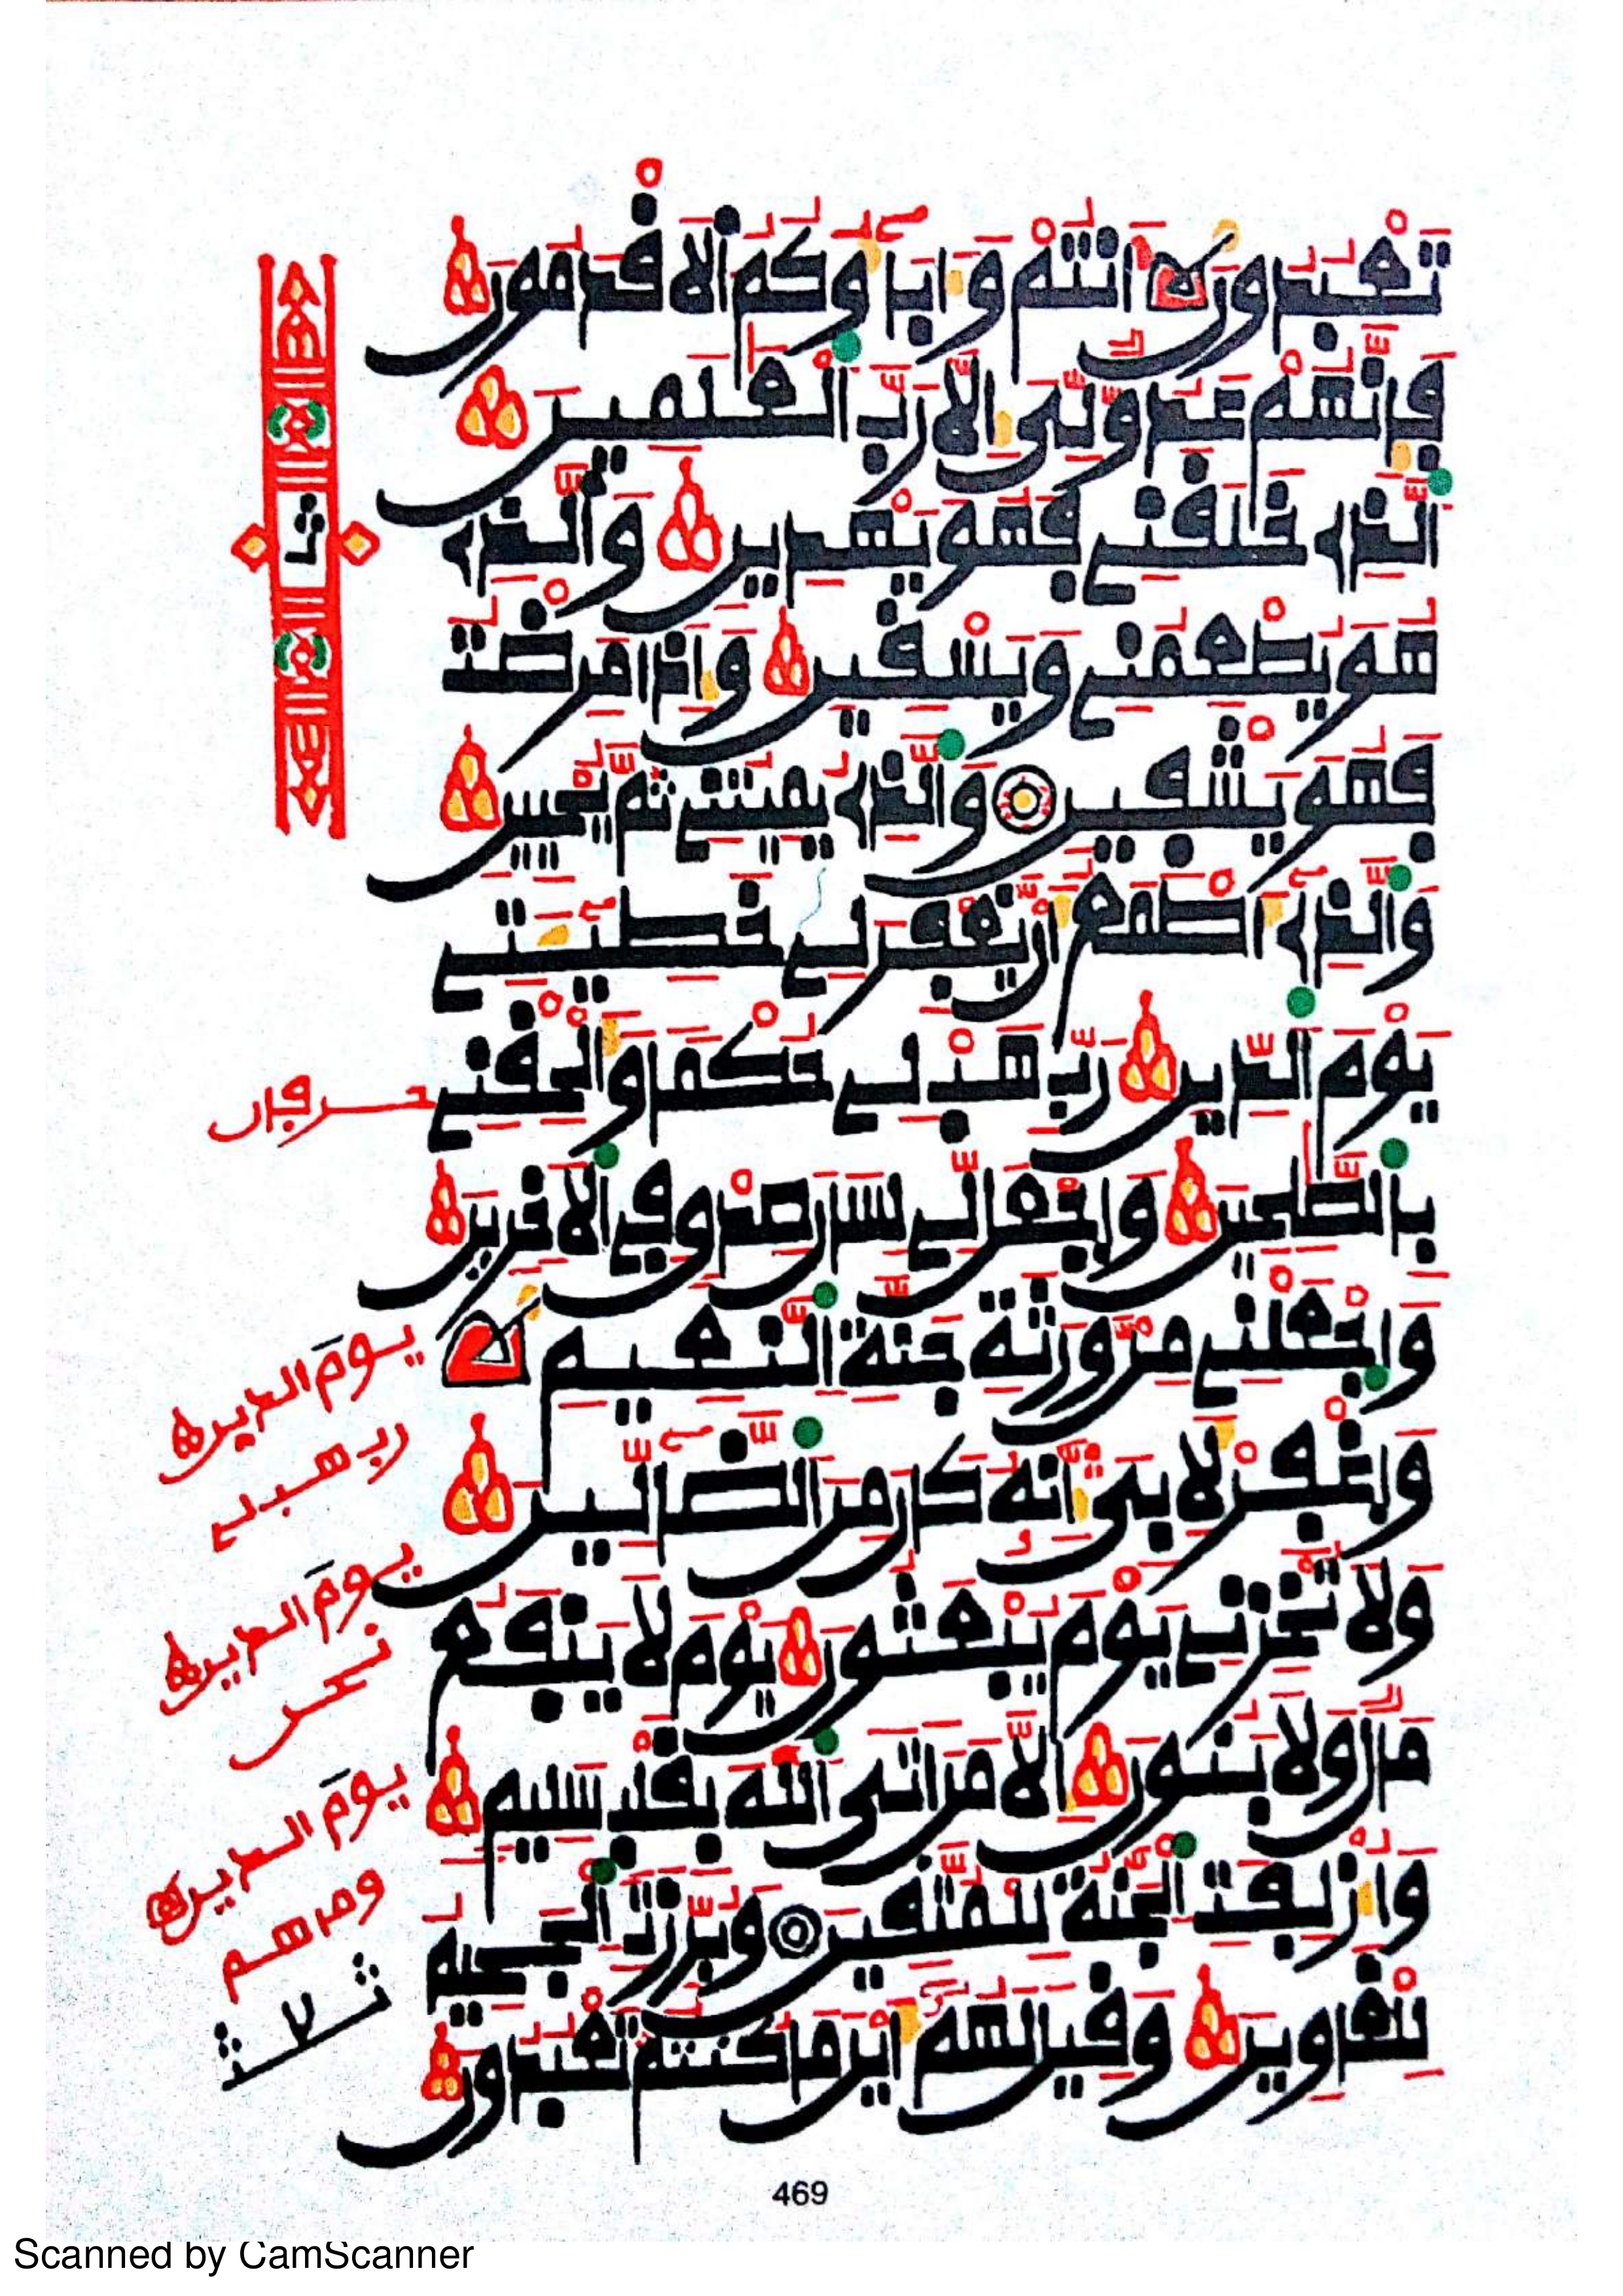 تَعْبُدُونَ أَنتُمْ وَءَابَآؤُكُمُ الْأَقْدَمُونَ
فَإِنَّهُمْ عَدُوٌّ لِّي إِلَّا رَبَّ الْعَٰلَمِينَ
الَّذِي خَلَقَنِي فَهُوَ يَهْدِينِ وَالَّذِي
هُوَ يُطْعِمُنِي وَيَسْقِينِ وَإِذَا مَرِضْتُ
فَهُوَ يَشْفِينِ وَالَّذِي يُمِيتُنِي ثُمَّ يُحْيِينِ
وَالَّذِي أَطْمَعُ أَن يَغْفِرَ لِي خَطِيٓـَٔتِي
يَوْمَ الدِّينِ رَبِّ هَبْ لِي حُكْمًا وَأَلْحِقْنِي
بِالصَّٰلِحِينَ وَاجْعَل لِّي لِسَانَ صِدْقٍ فِي الْءَاخِرِينَ
وَاجْعَلْنِي مِن وَرَثَةِ جَنَّةِ النَّعِيمِ
وَاغْفِرْ لِأَبِي إِنَّهُ كَانَ مِنَ الضَّآلِّينَ
وَلَا تُخْزِنِي يَوْمَ يُبْعَثُونَ يَوْمَ لَا يَنفَعُ
مَالٌ وَلَا بَنُونَ إِلَّا مَنْ أَتَى اللَّهَ بِقَلْبٍ سَلِيمٍ
وَأُزْلِفَتِ الْجَنَّةُ لِلْمُتَّقِينَ وَبُرِّزَتِ الْجَحِيمُ
لِلْغَاوِينَ وَقِيلَ لَهُمْ أَيْنَ مَا كُنتُمْ تَعْبُدُونَ
يومَ الدين
رب هب لي
يومَ الدين
يومَ الدين
469
Scanned by CamScanner